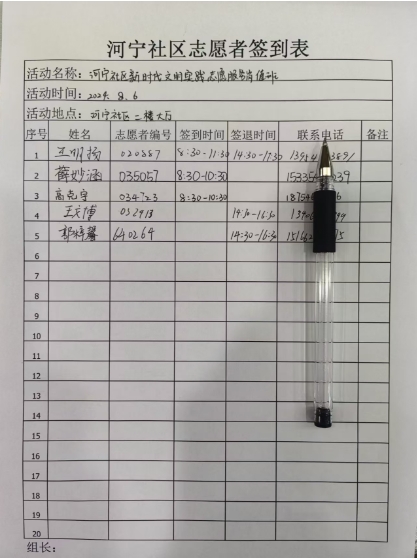 河宁社区志愿者签到表
活动名称：河宁社区新时代文明实践志愿服务岗值班
活动时间：2024.8.6
活动地点：河宁社区二楼大厅
序号 姓名 志愿者编号 签到时间 签退时间 联系电话 备注
1 王明扬 020887 8:30-11:30 14:30-17:30
2 薛妙涵 035057 8:30-10:30
3 高克宇 034723 8:30-10:30
4 032913 14:30-16:30
5 640264 14:30-16:30
6
7
8
9
10
11
12
13
14
15
16
17
18
19
20
组长：